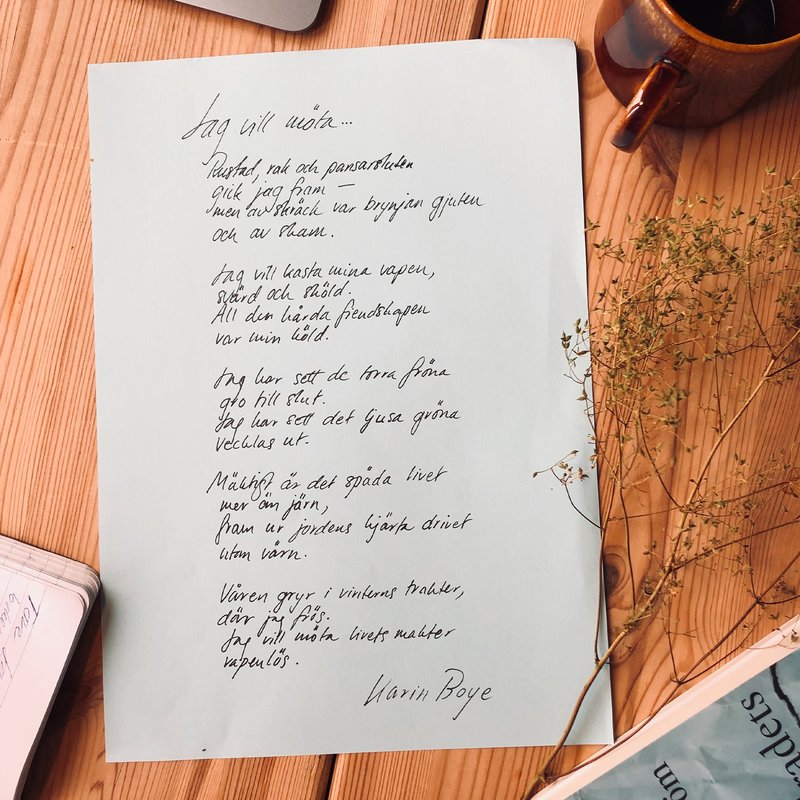 Jag vill möta...
Rustad, rak och pansarsluten
gick jag fram —
men av skräck var brynjan gjuten
och av skam.
Jag vill kasta mina vapen,
svärd och sköld.
All den hårda fiendskapen
var min köld.
Jag har sett de torra fröna
gro till slut.
Jag har sett det ljusa gröna
vecklas ut.
Mäktigt är det späda livet
mer än järn,
fram ur jordens hjärta drivet
utan värn.
Våren gryr i vinterns trakter,
där jag frös.
Jag vill möta livets makter
vapenlös.
Karin Boye
adets
om